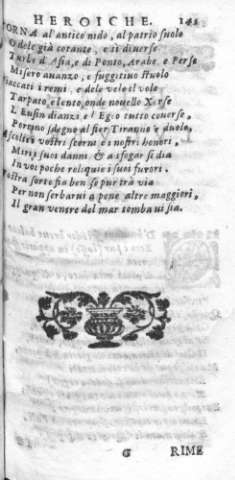 HEROICHE. 145
TORNA al antico nido, al patrio suolo
O dele già cotante, e sì diverse
Turbe d'Asia, e di Ponto, Arabe, e Perse
Misero auanzo, e fuggitiuo stuolo
i remi, e dele vele il volo
Tarpato, e lento, onde nouello Xerse
L'Eusin dianzi e l'Egeo tutto couerse,
Portino sdegno al fier Tiranno e duolo,
Ascolti i vostri scorni e i nostri honori,
Miri i suoi danni & a sfogar si dia
In voi poche reliquie i suoi furori.
Vostra sorte fia ben se pur trà via
Per non serbarui a pene altre maggiori,
Il gran ventre del mar tomba vi sia.
G RIME